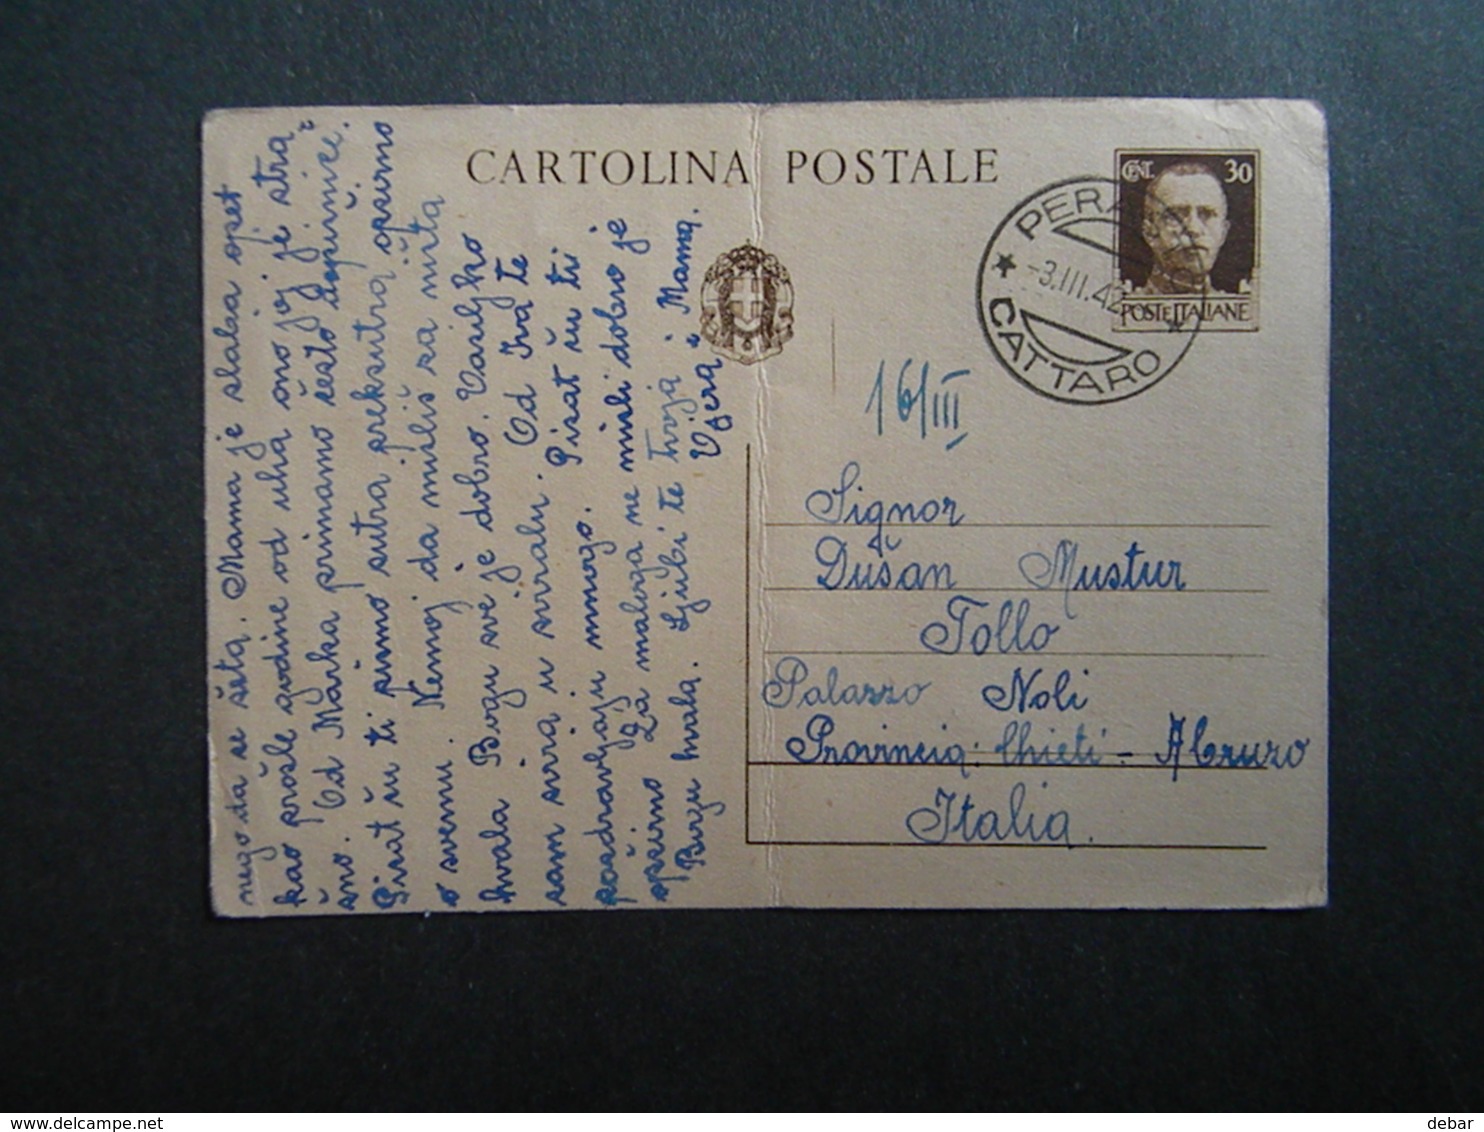 CARTOLINA POSTALE
CENT. 30
POSTE ITALIANE
PERA
-3.III.42
CATTARO
16/III
Signor
Dušan Mustur
Tollo
Palazzo Noli
Provincia: Chieti - Abruzo
Italia.
nego da se šeta. Mama je slaba opet
kao prošle godine od uha ono joj je stra
šno. Od Marka primamo često depirnice.
Pisat ću ti pismo sutra preksutra opširno
Nemoj da misliš za ništa
o svemu. Bogu sve je dobro. Vasiljko
hvala
Od Iva te
sam svira u sviralu. Pisat ću ti
pozdravljaju mnogo.
opširno Za maloga ne misli dobro je
Bogu hvala. Ljubi te tvoja Mama.
Vjera
debar